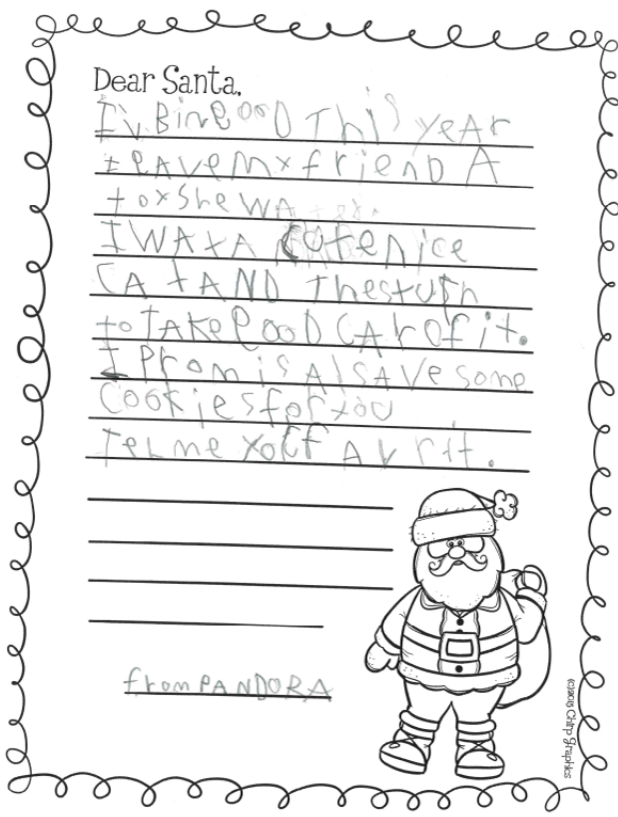 Dear Santa,
I'v Bin gooD This yeAr
geAve My friend A
toy She WAnted.
I WAtA Cute nice
CAt AND The stuph
to TAKe gooD CAr of it.
I Promis Al SAve some
Cookies for you
Tel me your FAvrit.
from PANDORA
(c)2013 Chirp Graphics